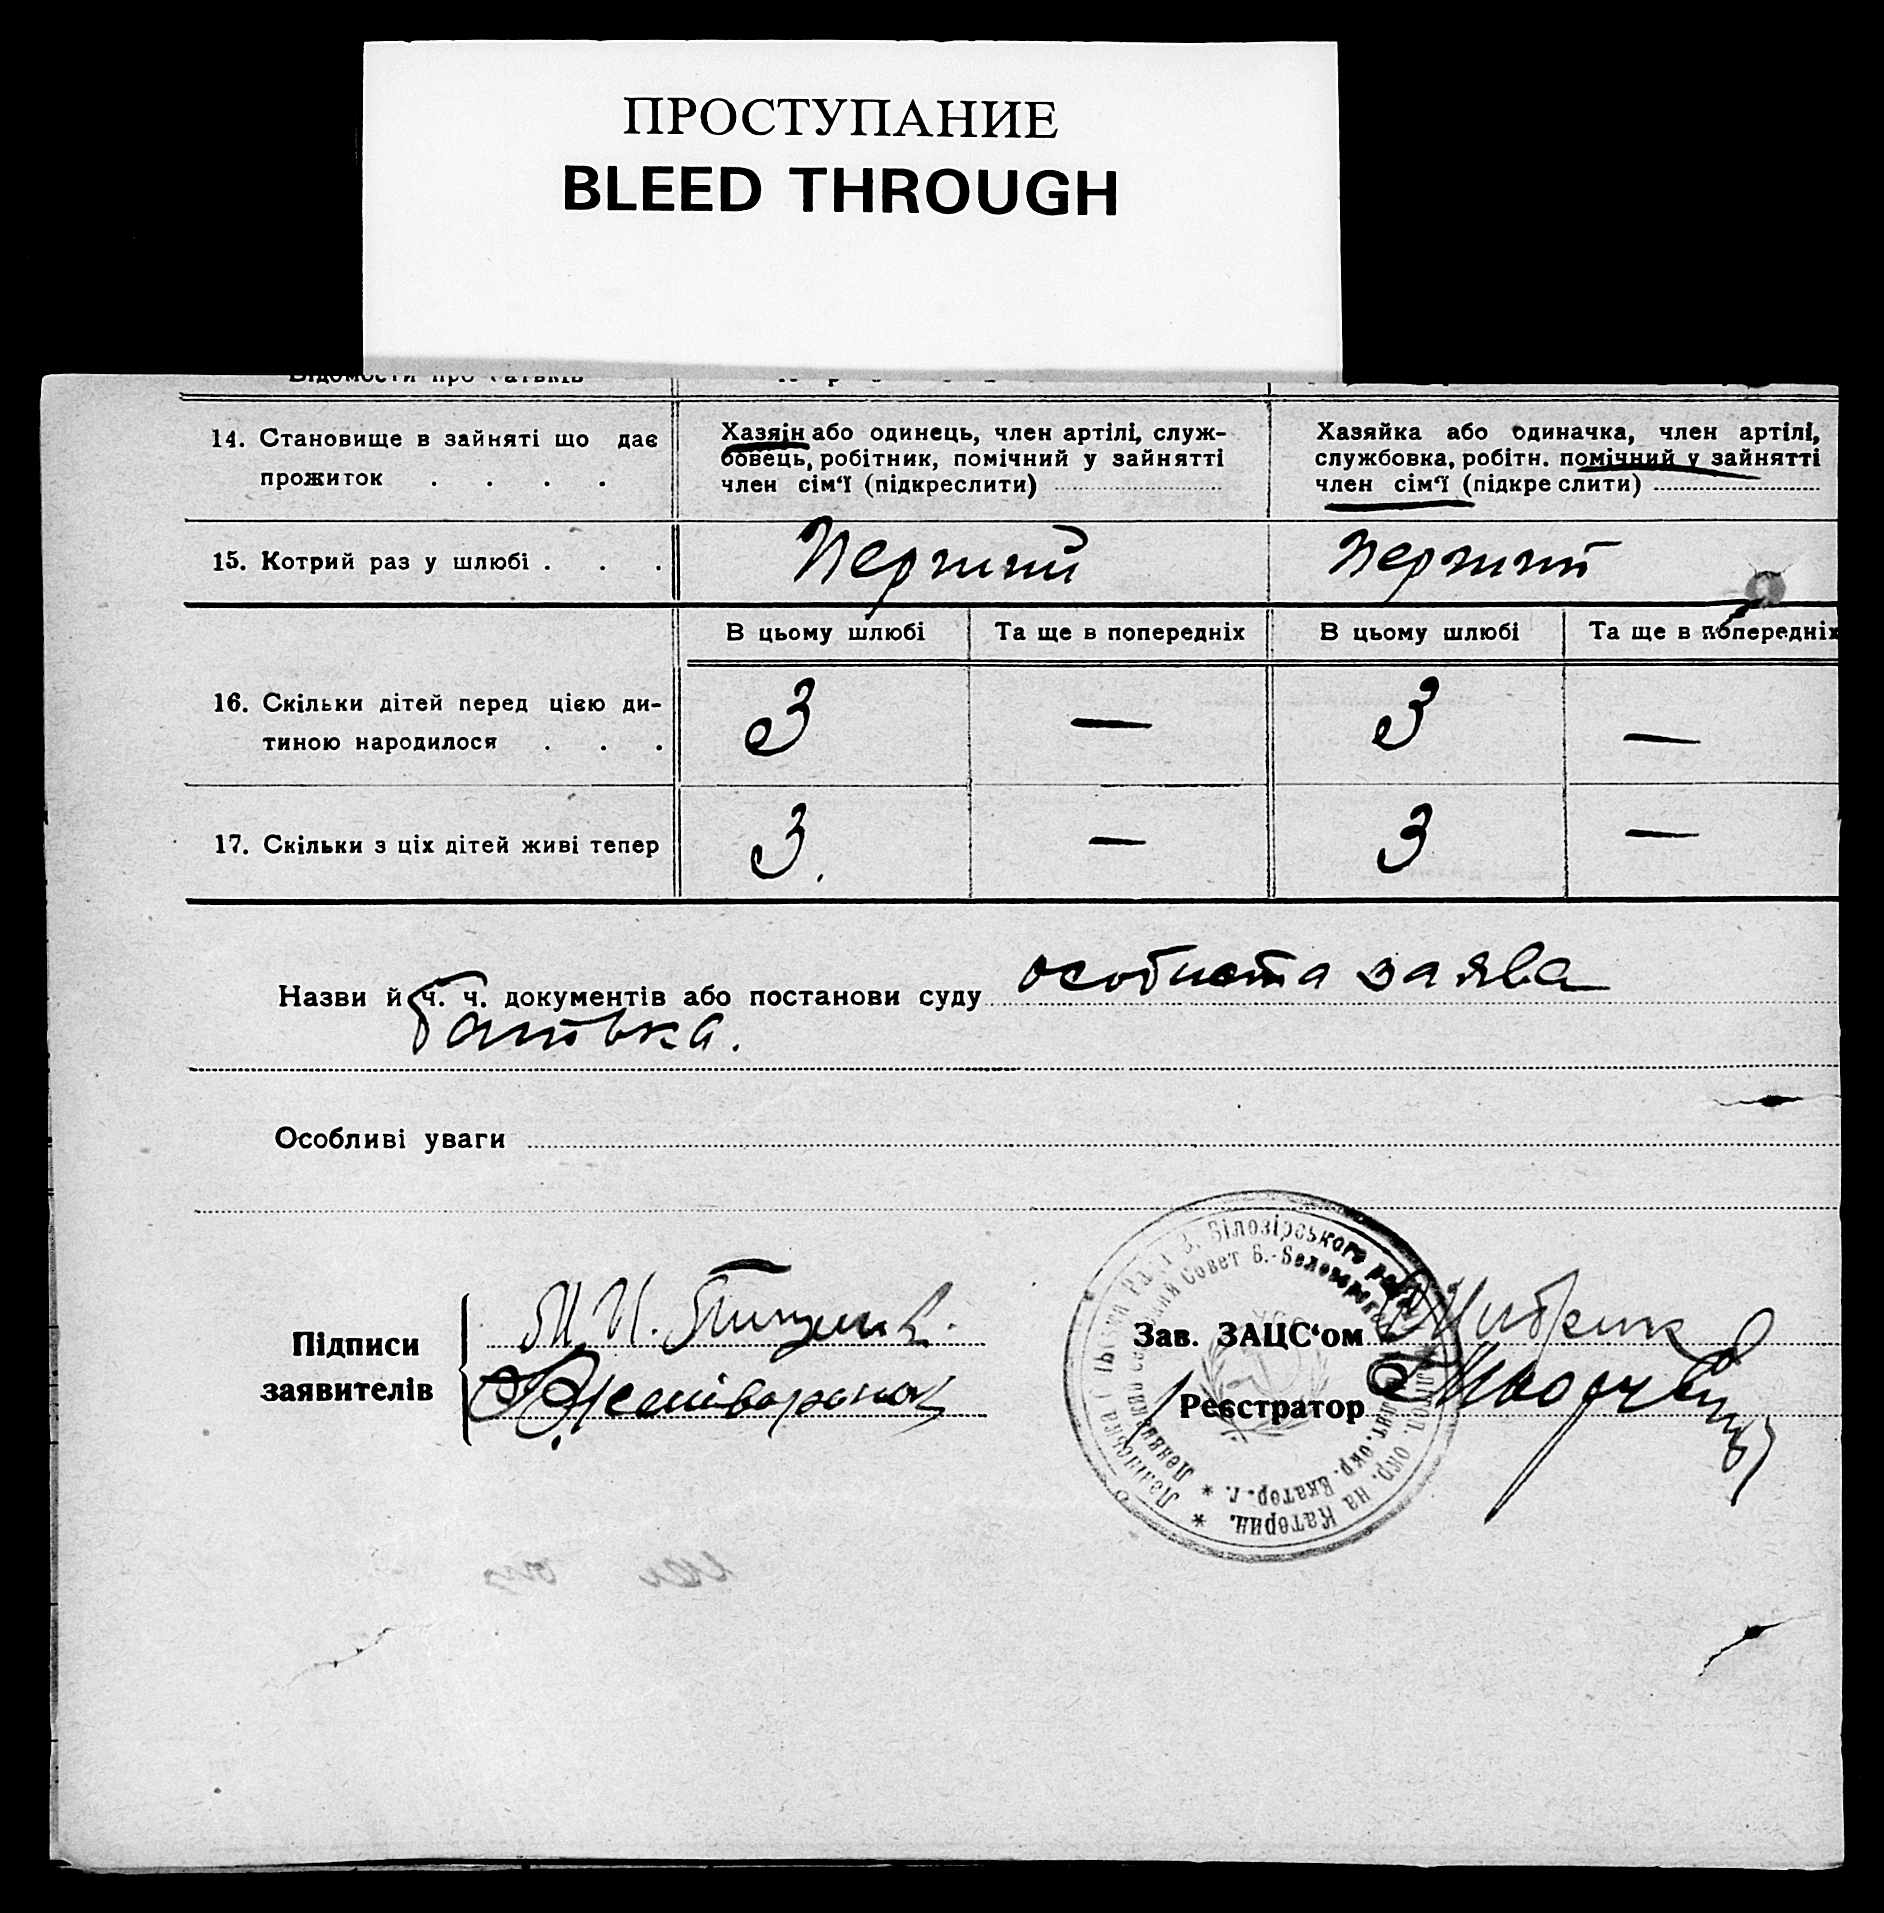 ПРОСТУПАНИЕ
BLEED THROUGH
14. Становище в зайняті що дає
прожиток . . . .
Хазяін або одинець, член артілі, служ-
бовець, робітник, помічний у зайнятті
член сім‘ї (підкреслити)
Хазяйка або одиначка, член артілі,
службовка, робітн. помічний у зайнятті
член сім‘ї (підкреслити)
15. Котрий раз у шлюбі . . .
Перший
перший
В цьому шлюбі
Та ще в попередніх
В цьому шлюбі
Та ще в попередніх
16. Скільки дітей перед цією ди-
тиною народилося . . .
3
—
3
—
17. Скільки з ціх дітей живі тепер
3.
—
3
—
Назви й ч. ч. документів або постанови суду особиста заява
батька.
Особливі уваги
Підписи
заявителів
М. И.
Зав. ЗАЦС‘ом
Реєстратор
Білозірського
окр. на Катерин.
окр. Екатор. г.